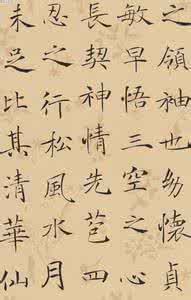 之領袖也幼懷貞
敏早悟三空之心
長契神情先苞四
忍之行松風水月
未足比其清華仙